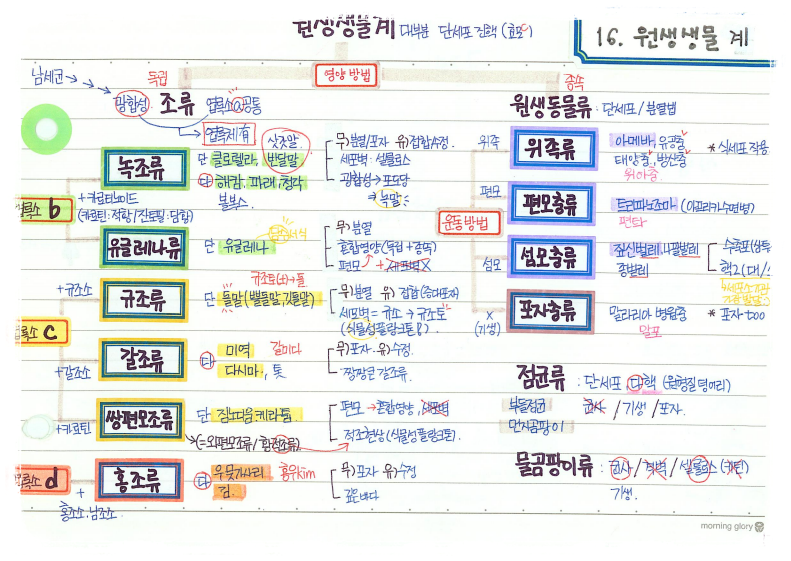 원생생물계 대부분 단세포 진핵
16. 원생생물 계
영양 방법
남세균
독립
종속
광합성 조류 엽록소@공통
엽록체 有
원생동물류 : 단세포 / 분열법
녹조류
단 클로렐라, 반달말
삿갓말
다 해캄, 파래, 청각
볼복스
무)분열/포자 유)접합/수정.
세포벽 : 셀룰로스
광합성 → 포도당
녹말
엽록소 b
+카로티노이드
(카로틴:적황/잔토필:담황)
유글레나류
단 유글레나
담수서식
무)분열
혼합영양 (독립+종속)
편모 + 세포벽X
+규조소
규조류
규조토(土)→돌
단 돌말(뱀돌말, 깃돌말)
무)분열 유) 접합 (증대포자)
세포벽 = 규소 → 규조토
(식물성플랑크톤)
엽록소 c
+갈조소
갈조류
다 미역 갈미다
다시마, 톳
무)포자 유)수정.
짱짱큰 갈조류.
+카로틴
쌍편모조류
단 짐노디움, 케라튬.
(=와편모조류/황적조류)
편모 → 혼합영양, 세포벽
적조현상 (식물성플랑크톤).
엽록소 d
+
홍조소, 남조소
홍조류
다 우뭇가사리 홍우kim
김.
무)포자 유)수정
깊은바다
운동방법
위족
위족류
아메바, 유공충
태양충, 방산충
위아충
* 식세포 작용
편모
편모충류
트리파노조마 (아프리카수면병)
편타
섬모
섬모충류
짚신벌레, 나팔벌레
종벌레
수축포
핵2(대/소
X
(기생)
포자충류
말라리아 병원충
말포
* 포자
점균류 : 단세포, 다핵 (원형질 덩어리)
먼지곰팡이
균사 / 기생 / 포자.
물곰팡이류 : 균사 / 격벽 / 셀룰로스 (키틴)
기생.
morning glory